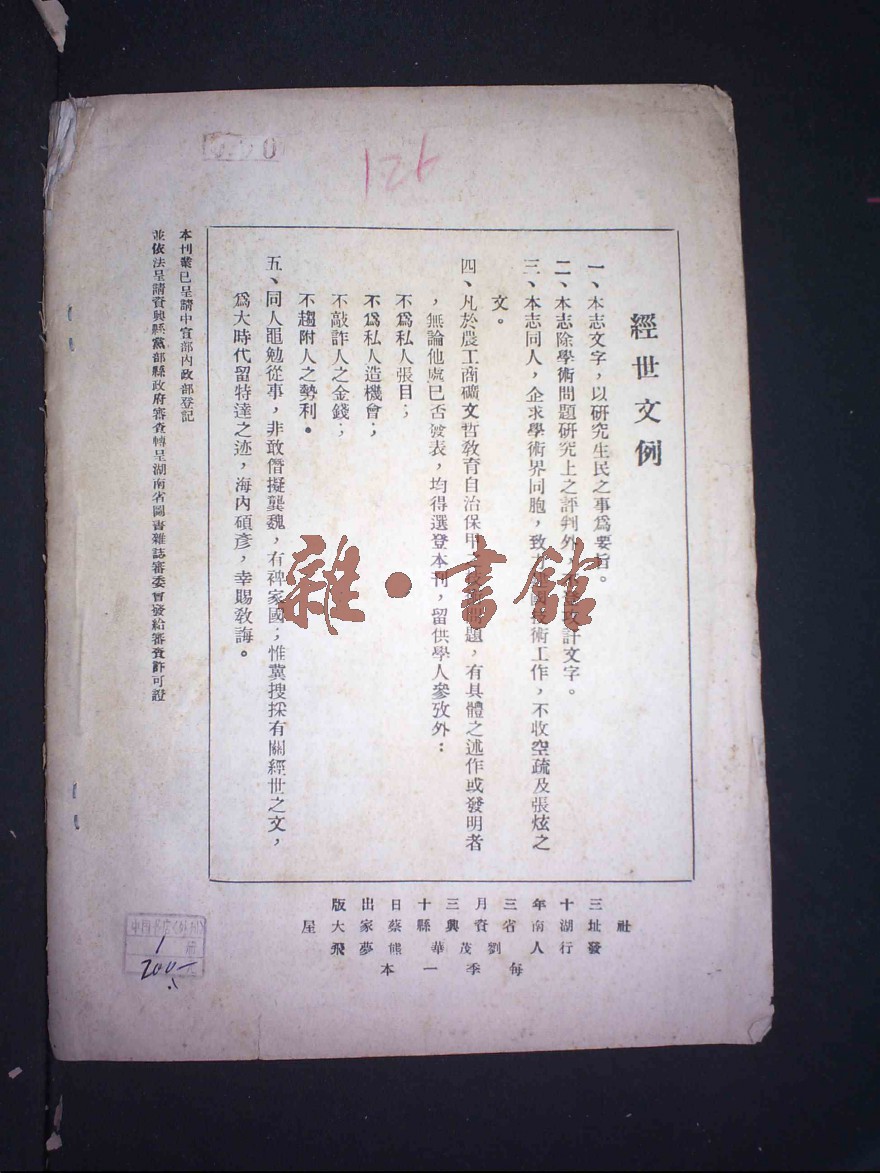 126
經世文例
一、本志文字，以研究生民之事爲要旨。
二、本志除學術問題研究上之評判外，不攻訐文字。
三、本志同人，企求學術界同胞，致國技術工作，不收空疏及張炫之
文。
四、凡於農工商礦文哲敎育自治保甲問題，有具體之述作或發明者
，無論他處已否發表，均得選登本刊，留供學人參攷外：
不爲私人張目；
不爲私人造機會；
不敲詐人之金錢；
不趨附人之勢利。
五、同人黽勉從事，非敢僭擬龔魏，有裨家國；惟冀搜採有關經世之文，
爲大時代留特達之迹，海內碩彥，幸賜敎誨。
本刊叢已呈請中宣部內政部登記
並依法呈請資興縣黨部縣政府審查轉呈湖南省圖書雜誌審委會發給審查許可證
三十年三月三十日出版
社址湖南省資興縣蔡家大屋
發行人劉茂華熊夢飛
每季一本
雜·書館
中国书店
1 册
200